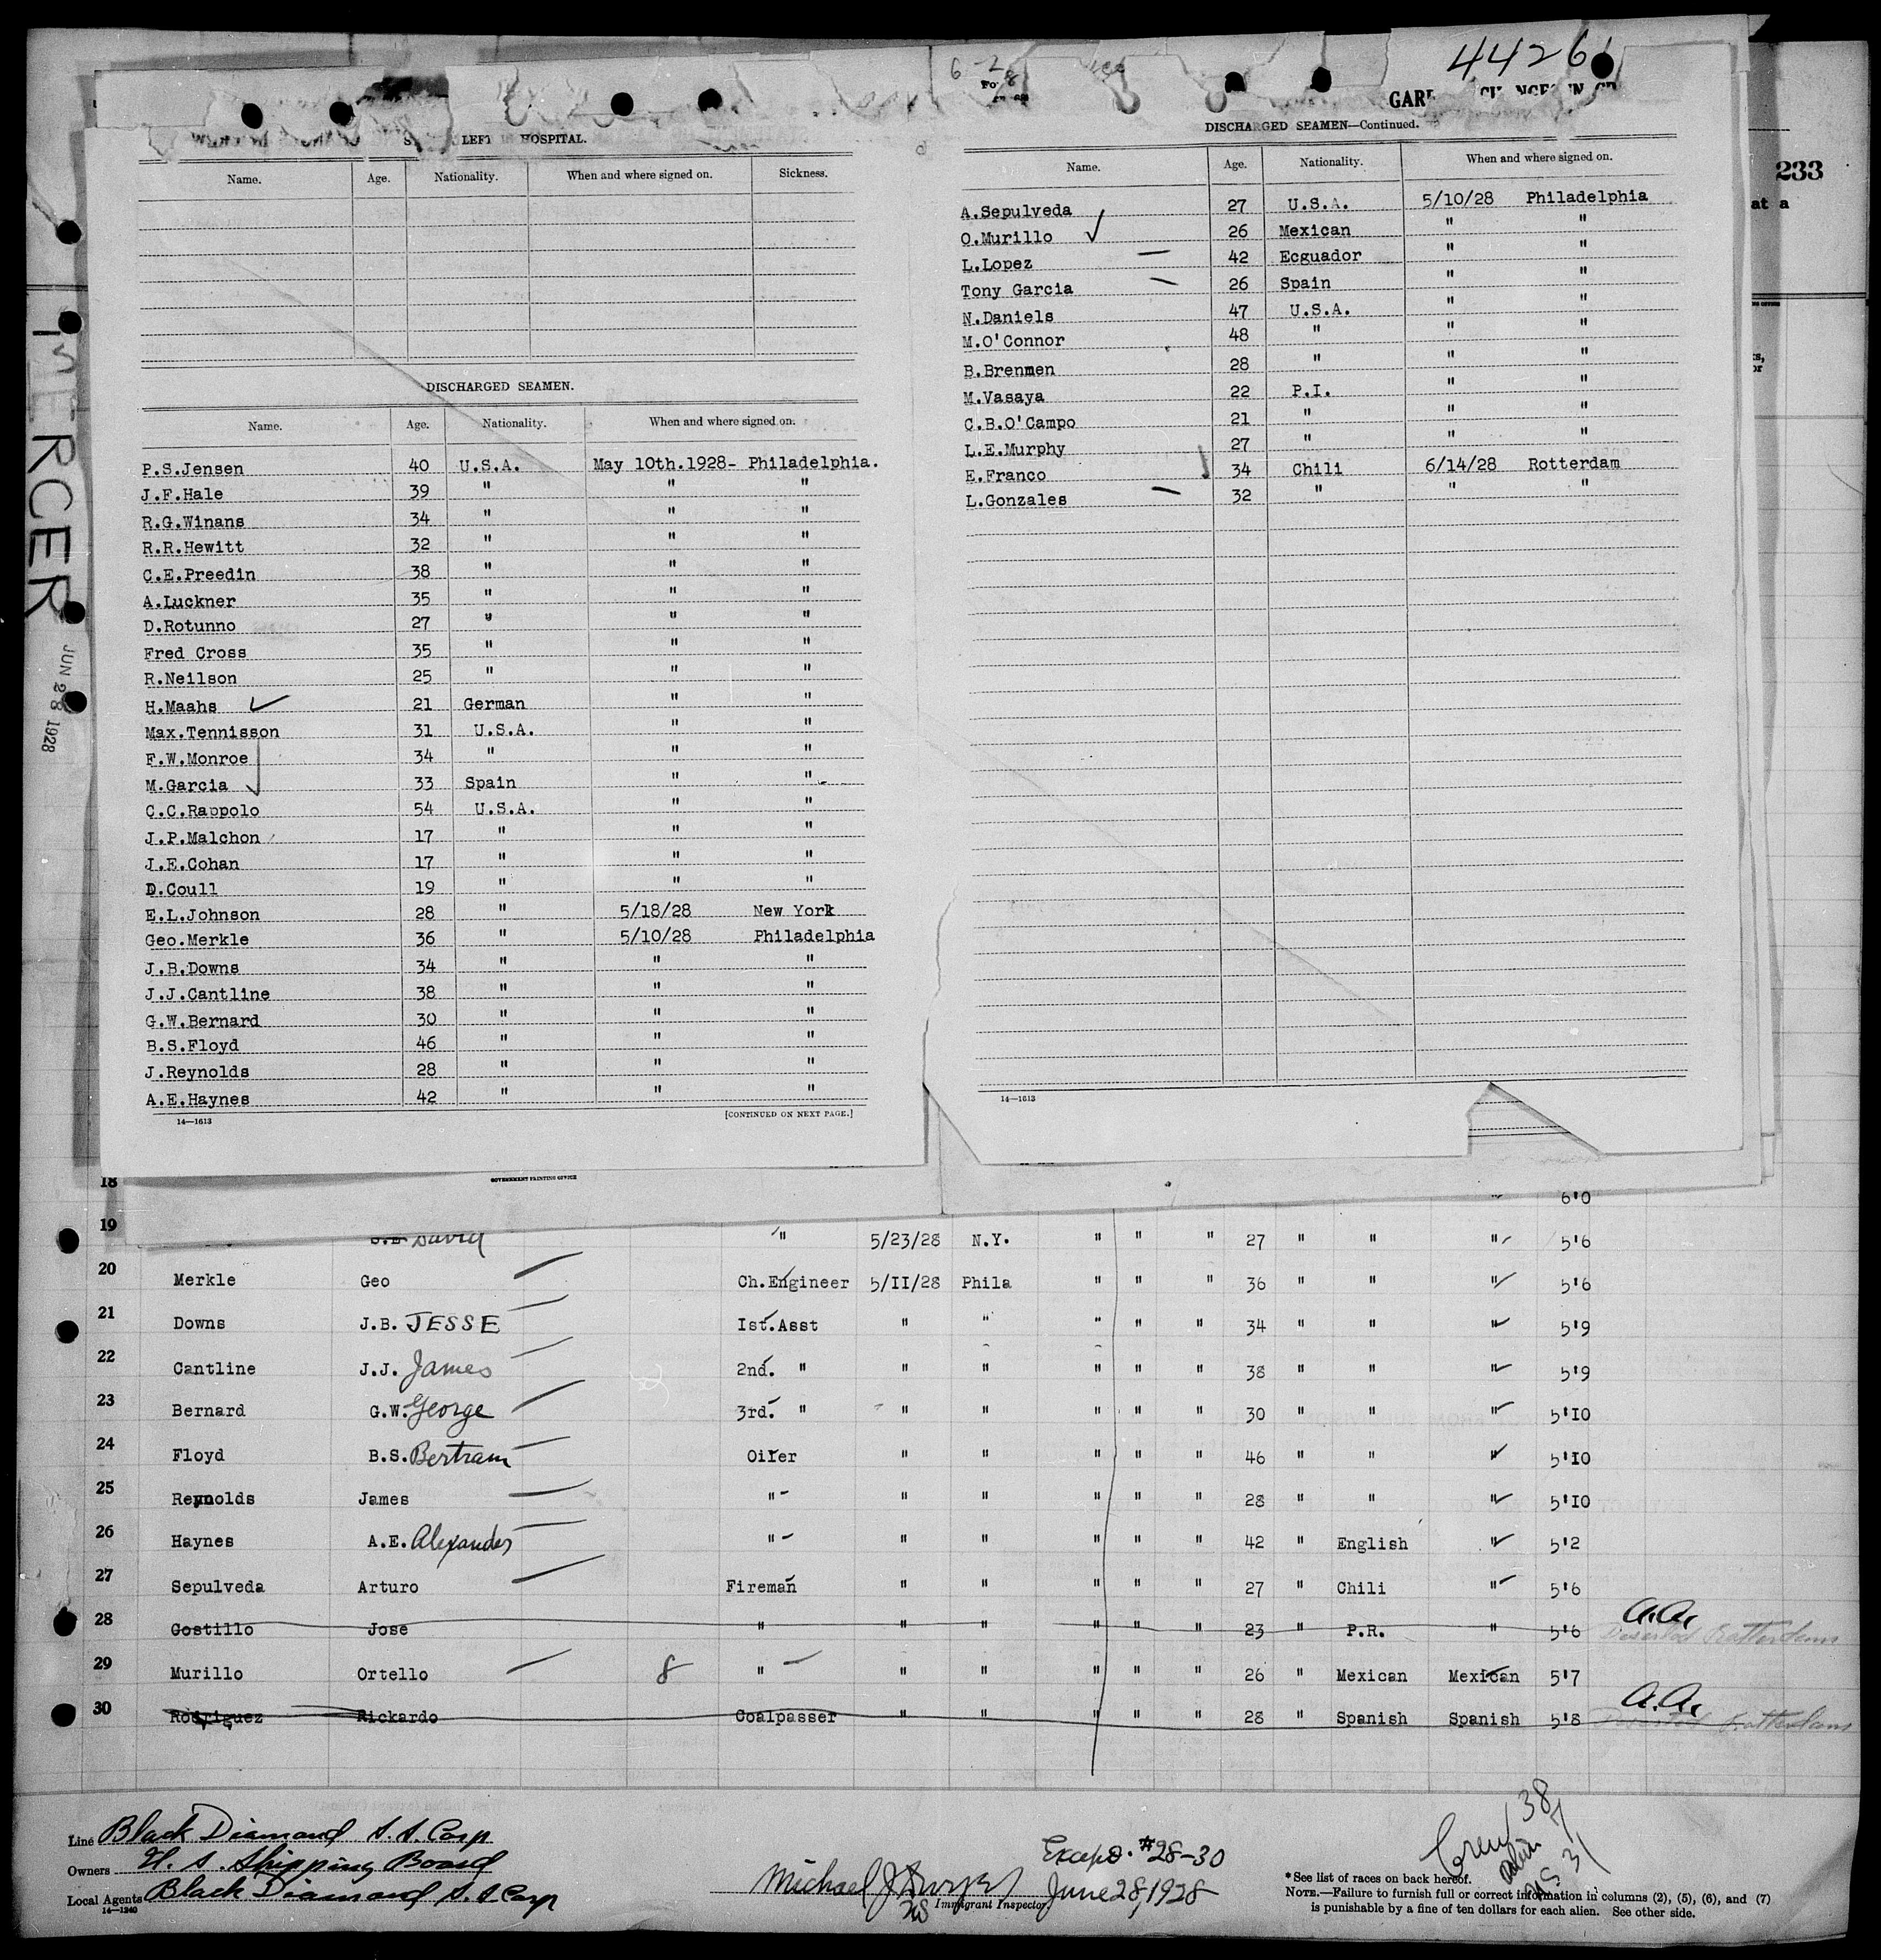 4426
GAR
DISCHARGED SEAMEN—Continued.
LEFT HOSPITAL.
Name. Age. Nationality. When and where signed on. Sickness.
DISCHARGED SEAMEN.
Name. Age. Nationality. When and where signed on.
P.S.Jensen 40 U.S.A. May 10th.1928- Philadelphia.
J.F.Hale 39 " " "
R.G.Winans 34 " " "
R.R.Hewitt 32 " " "
C.E.Preedin 38 " " "
A.Luckner 35 " " "
D.Rotunno 27 " " "
Fred Cross 35 " " "
R.Neilson 25 " " "
H.Maahs 21 German " "
Max.Tennisson 31 U.S.A. " "
F.W.Monroe 34 " " "
M.Garcia 33 Spain " "
C.C.Rappolo 54 U.S.A. " "
J.P.Malchon 17 " " "
J.E.Cohan 17 " " "
D.Coull 19 " " "
E.L.Johnson 28 " 5/18/28 New York
Geo.Merkle 36 " 5/10/28 Philadelphia
J.B.Downs 34 " " "
J.J.Cantline 38 " " "
G.W.Bernard 30 " " "
B.S.Floyd 46 " " "
J.Reynolds 28 " " "
A.E.Haynes 42 " " "
14—1613 [CONTINUED ON NEXT PAGE.]
Name. Age. Nationality. When and where signed on.
A.Sepulveda 27 U.S.A. 5/10/28 Philadelphia
O.Murillo 26 Mexican " "
L.Lopez 42 Ecguador " "
Tony Garcia 26 Spain " "
N.Daniels 47 U.S.A. " "
M.O'Connor 48 " " "
B.Brenmen 28 " " "
M.Vasaya 22 P.I. " "
C.B.O'Campo 21 " " "
L.E.Murphy 27 " " "
E.Franco 34 Chili 6/14/28 Rotterdam
L.Gonzales 32 " " "
14—1613
233
at a
MERCER
JUN 28 1928
GOVERNMENT PRINTING OFFICE
18 6'0
19 David " 5/23/28 N.Y. " " " 27 " " " 5'6
20 Merkle Geo Ch.Engineer 5/II/28 Phila " " " 36 " " " 5'6
21 Downs J.B. JESSE Ist.Asst " " " " " 34 " " " 5'9
22 Cantline J.J. James 2nd. " " " " " " 38 " " " 5'9
23 Bernard G.W. George 3rd. " " " " " " 30 " " " 5'IO
24 Floyd B.S. Bertram Oiler " " " " " 46 " " " 5'IO
25 Reynolds James " " " " " " 28 " " " 5'IO
26 Haynes A.E. Alexander " " " " " " 42 " English " 5'2
27 Sepulveda Arturo Fireman " " " " " 27 " Chili " 5'6
28 Gostillo Jose " " " " " " 23 " P.R. " 5'6 a.a. Deserted Rotterdam
29 Murillo Ortello 8 " " " " " " 26 " Mexican Mexican 5'7
30 Rodriguez Rickardo Coalpasser " " " " " 28 " Spanish Spanish 5'8 a.a. Deserted Rotterdam
Line Black Diamond S.S. Corp
Owners U.S. Shipping Board
Local Agents Black Diamond S.S. Corp
14—1240
Except #28-30
Michael J. June 28, 1928
Immigrant Inspector.
Crew 38
alien 7
U.S. 31
*See list of races on back hereof.
NOTE.—Failure to furnish full or correct information in columns (2), (5), (6), and (7)
is punishable by a fine of ten dollars for each alien. See other side.